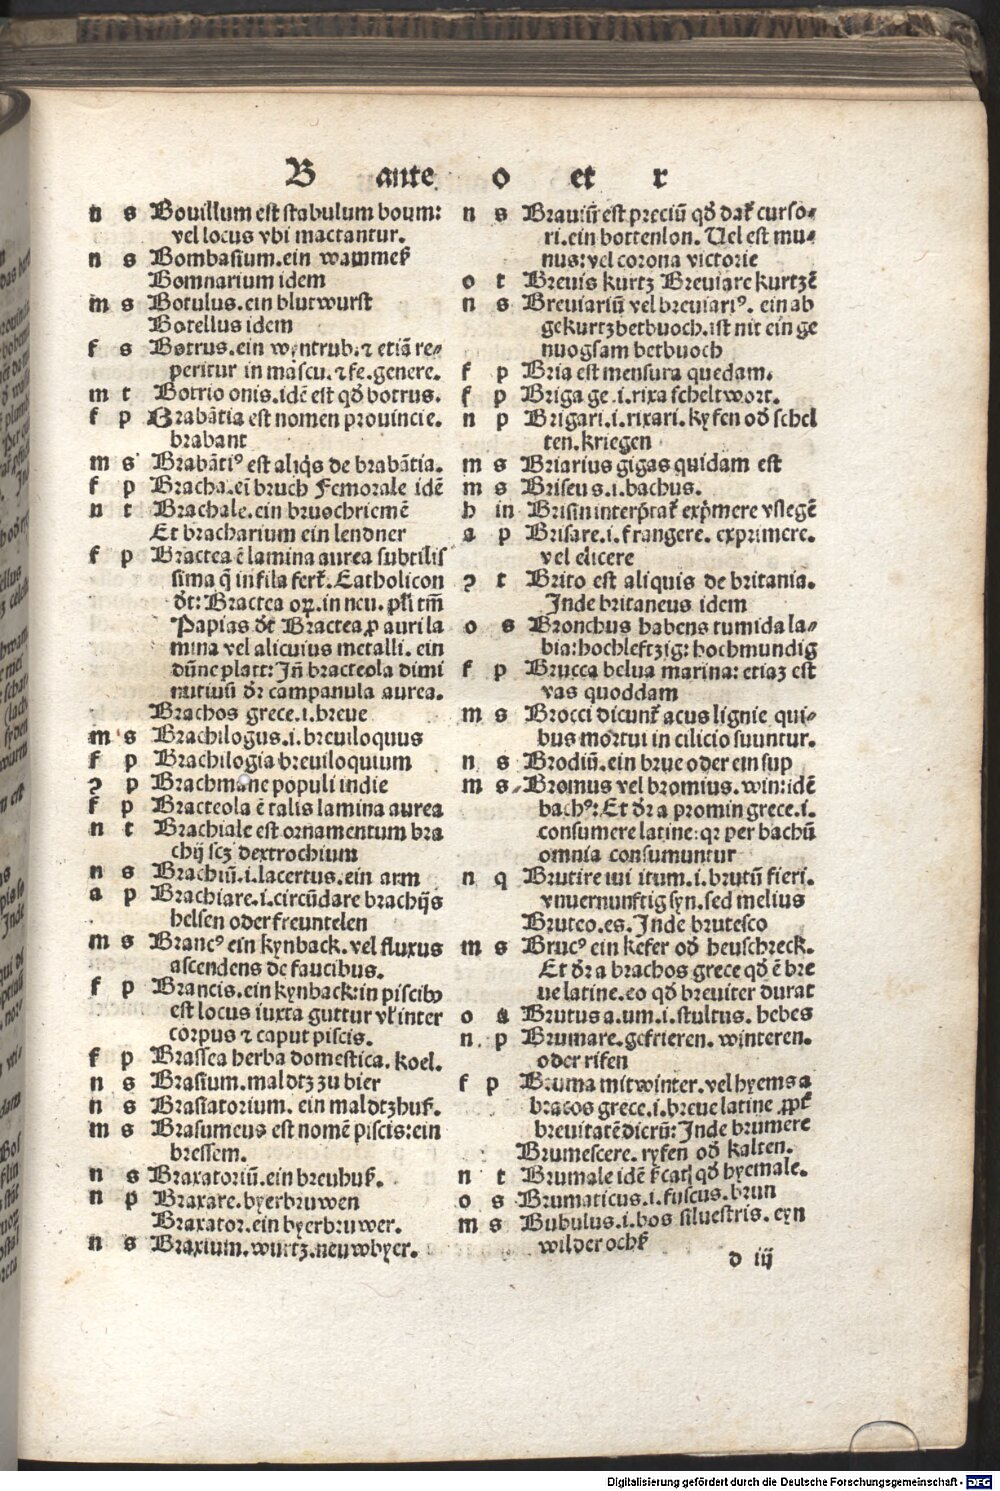 B ante o et r
n s Bouillum est stabulum boum:
vel locus vbi mactantur.
n s Bombasium. ein wammeß
Bomnarium idem
m s Botulus. ein blutwurst
Botellus idem
f s Botrus. ein wyntrub: ⁊ etiā re⸗
peritur in mascu. ⁊ fe. genere.
m t Botrio onis. idē est qđ botrus.
f p Brabātia est nomen prouincie.
brabant
m s Brabātiꝰ est aliq̇s de brabātia.
f p Bracha. eī bruch Femorale idē
n t Brachale. ein bruochriemē
Et bracharium ein lendner
f p Bractea ē lamina aurea subtilis
sima q̄ in fila fert᷑. Catholicon
d᷑t: Bractea oꝝ. in neu. pl̄i tm̄
Papias d᷑t Bractea ꝓ auri la
mina vel alicuius metalli. ein
dūne platt: Jn̄ bracteola dimi
nutiuū d᷑r campanula aurea.
Brachos grece .i. breue
m s Brachilogus .i. breuiloquus
f p Brachilogia breuiloquium
ꝯ p Brachmane populi indie
f p Bracteola ē talis lamina aurea
n t Brachiale est ornamentum bra
chij scꝫ dextrochium
n s Brachiū .i. lacertus. ein arm
a p Brachiare .i. circūdare brachijs
helsen oder freuntelen
m s Brancꝰ ein kynback. vel fluxus
ascendens de faucibus.
f p Brancis. ein kynback: in piscibꝰ
est locus iuxta guttur vl̓ inter
corpus ⁊ caput piscis.
f p Brassea herba domestica. koel.
n s Brasium. maldtz zu bier
n s Brasiatorium. ein maldtzhuß.
m s Brasumeus est nomē piscis: ein
bressem.
n s Braxatoriū. ein breuhuß.
n p Braxare. byerbruwen
Braxator. ein byerbruwer.
n s Braxium. wurtz. neuwbyer.
n s Brauiū est preciū qđ dat᷑ curso⸗
ri. ein bottenlon. Uel est mu⸗
nus: vel corona victorie
o t Breuis kurtz Breuiare kurtzē
n s Breuiariū vel breuiariꝰ. ein ab
gekurtzbetbuoch. ist nit ein ge
nuogsam betbuoch
f p Bria est mensura quedam.
f p Briga ge .i. rixa scheltwort.
n p Brigari .i. rixari. kyfen od̓ schel
ten. kriegen
m s Briarius gigas quidam est
m s Briseus .i. bachus.
h in Brisin interp̄tat᷑ exp̄mere vslegē
a p Brisare .i. frangere. exprimere.
vel elicere
ꝯ t Brito est aliquis de britania.
Jnde britaneus idem
o s Bronchus habens tumida la⸗
bia: hochlefftzig: hochmundig
f p Brucca belua marina: etiaꝫ est
vas quoddam
m s Brocci dicunt᷑ acus lignie qui⸗
bus mortui in cilicio suuntur.
n s Brodiū. ein brue oder ein sup
m s Bromus vel bromius. win: idē
bachꝰ: Et d᷑r a promin grece .i.
consumere latine: qꝛ per bachū
omnia consumuntur
n q Brutire iui itum .i. brutū fieri.
vnuernunftig syn. sed melius
Bruteo. es. Jnde brutesco
m s Brucꝰ ein kefer od̓ heuschreck.
Et d᷑r a brachos grece qđ ē bre
ue latine. eo qđ breuiter durat
o a Brutus a. um .i. stultus. hebes
n p Brumare. gefrieren. winteren.
oder rifen
f p Bruma mitwinter. vel hyems a
bracos grece .i. breue latine ꝓpt᷑
breuitatē dierū: Jnde brumere
Brumescere. ryfen od̓ kalten.
n t Brumale idē ſcatꝫ qđ hyemale.
o s Brumaticus .i. fuscus. brun
m s Bubulus .i. bos siluestris. eyn
wilder ochß
d iij
Digitalisierung gefördert durch die Deutsche Forschungsgemeinschaft - DFG